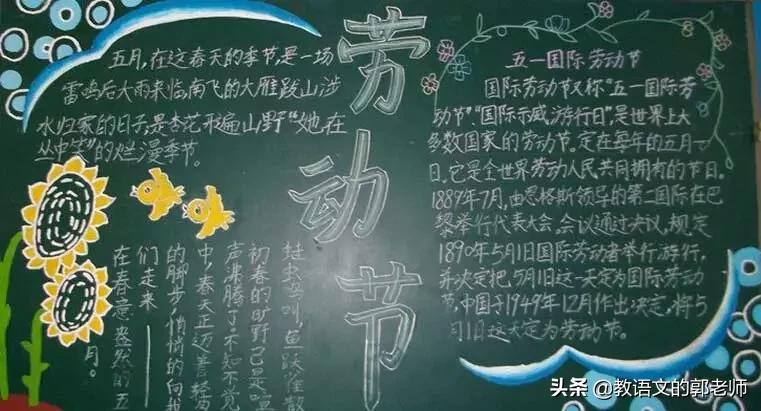 五月,在这春天的季节,是一场
雷鸣后大雨来临,南飞的大雁跋山涉
水归家的日子,是杏花形遍山野"她在
丛中笑"的烂漫季节。
劳动节
蛙虫鸟叫,鱼跃雀散
初春的旷野,已是喧
声沸腾了。不知不觉
中,春天正迈着轻盈
的脚步,悄悄的向我
们走来——
在春意盎然的五
月。
五一国际劳动节
国际劳动节又称"五一国际劳
动节""国际示威游行日",是世界上大
多数国家的劳动节。定在每年的五月一
日。它是全世界劳动人民共同拥有的节日。
1889年7月,由恩格斯领导的第二国际在巴
黎举行代表大会。会议通过决议,规定
1890年5月1日国际劳动者举行游行,
并决定把5月1日这一天定为国际劳动
节,中国于1949年12月作出决定,将5
月1日这天定为劳动节。
头条 @教语文的郭老师